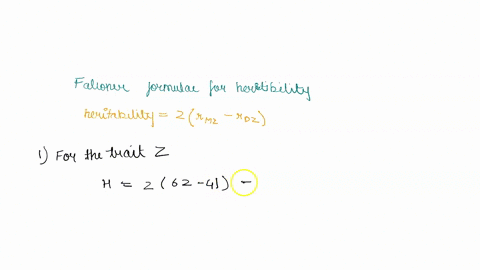 Falioner formulae for heritibility
heritability = 2(rMZ - rDZ)
1) For the trait Z
H = 2 (62-41) =